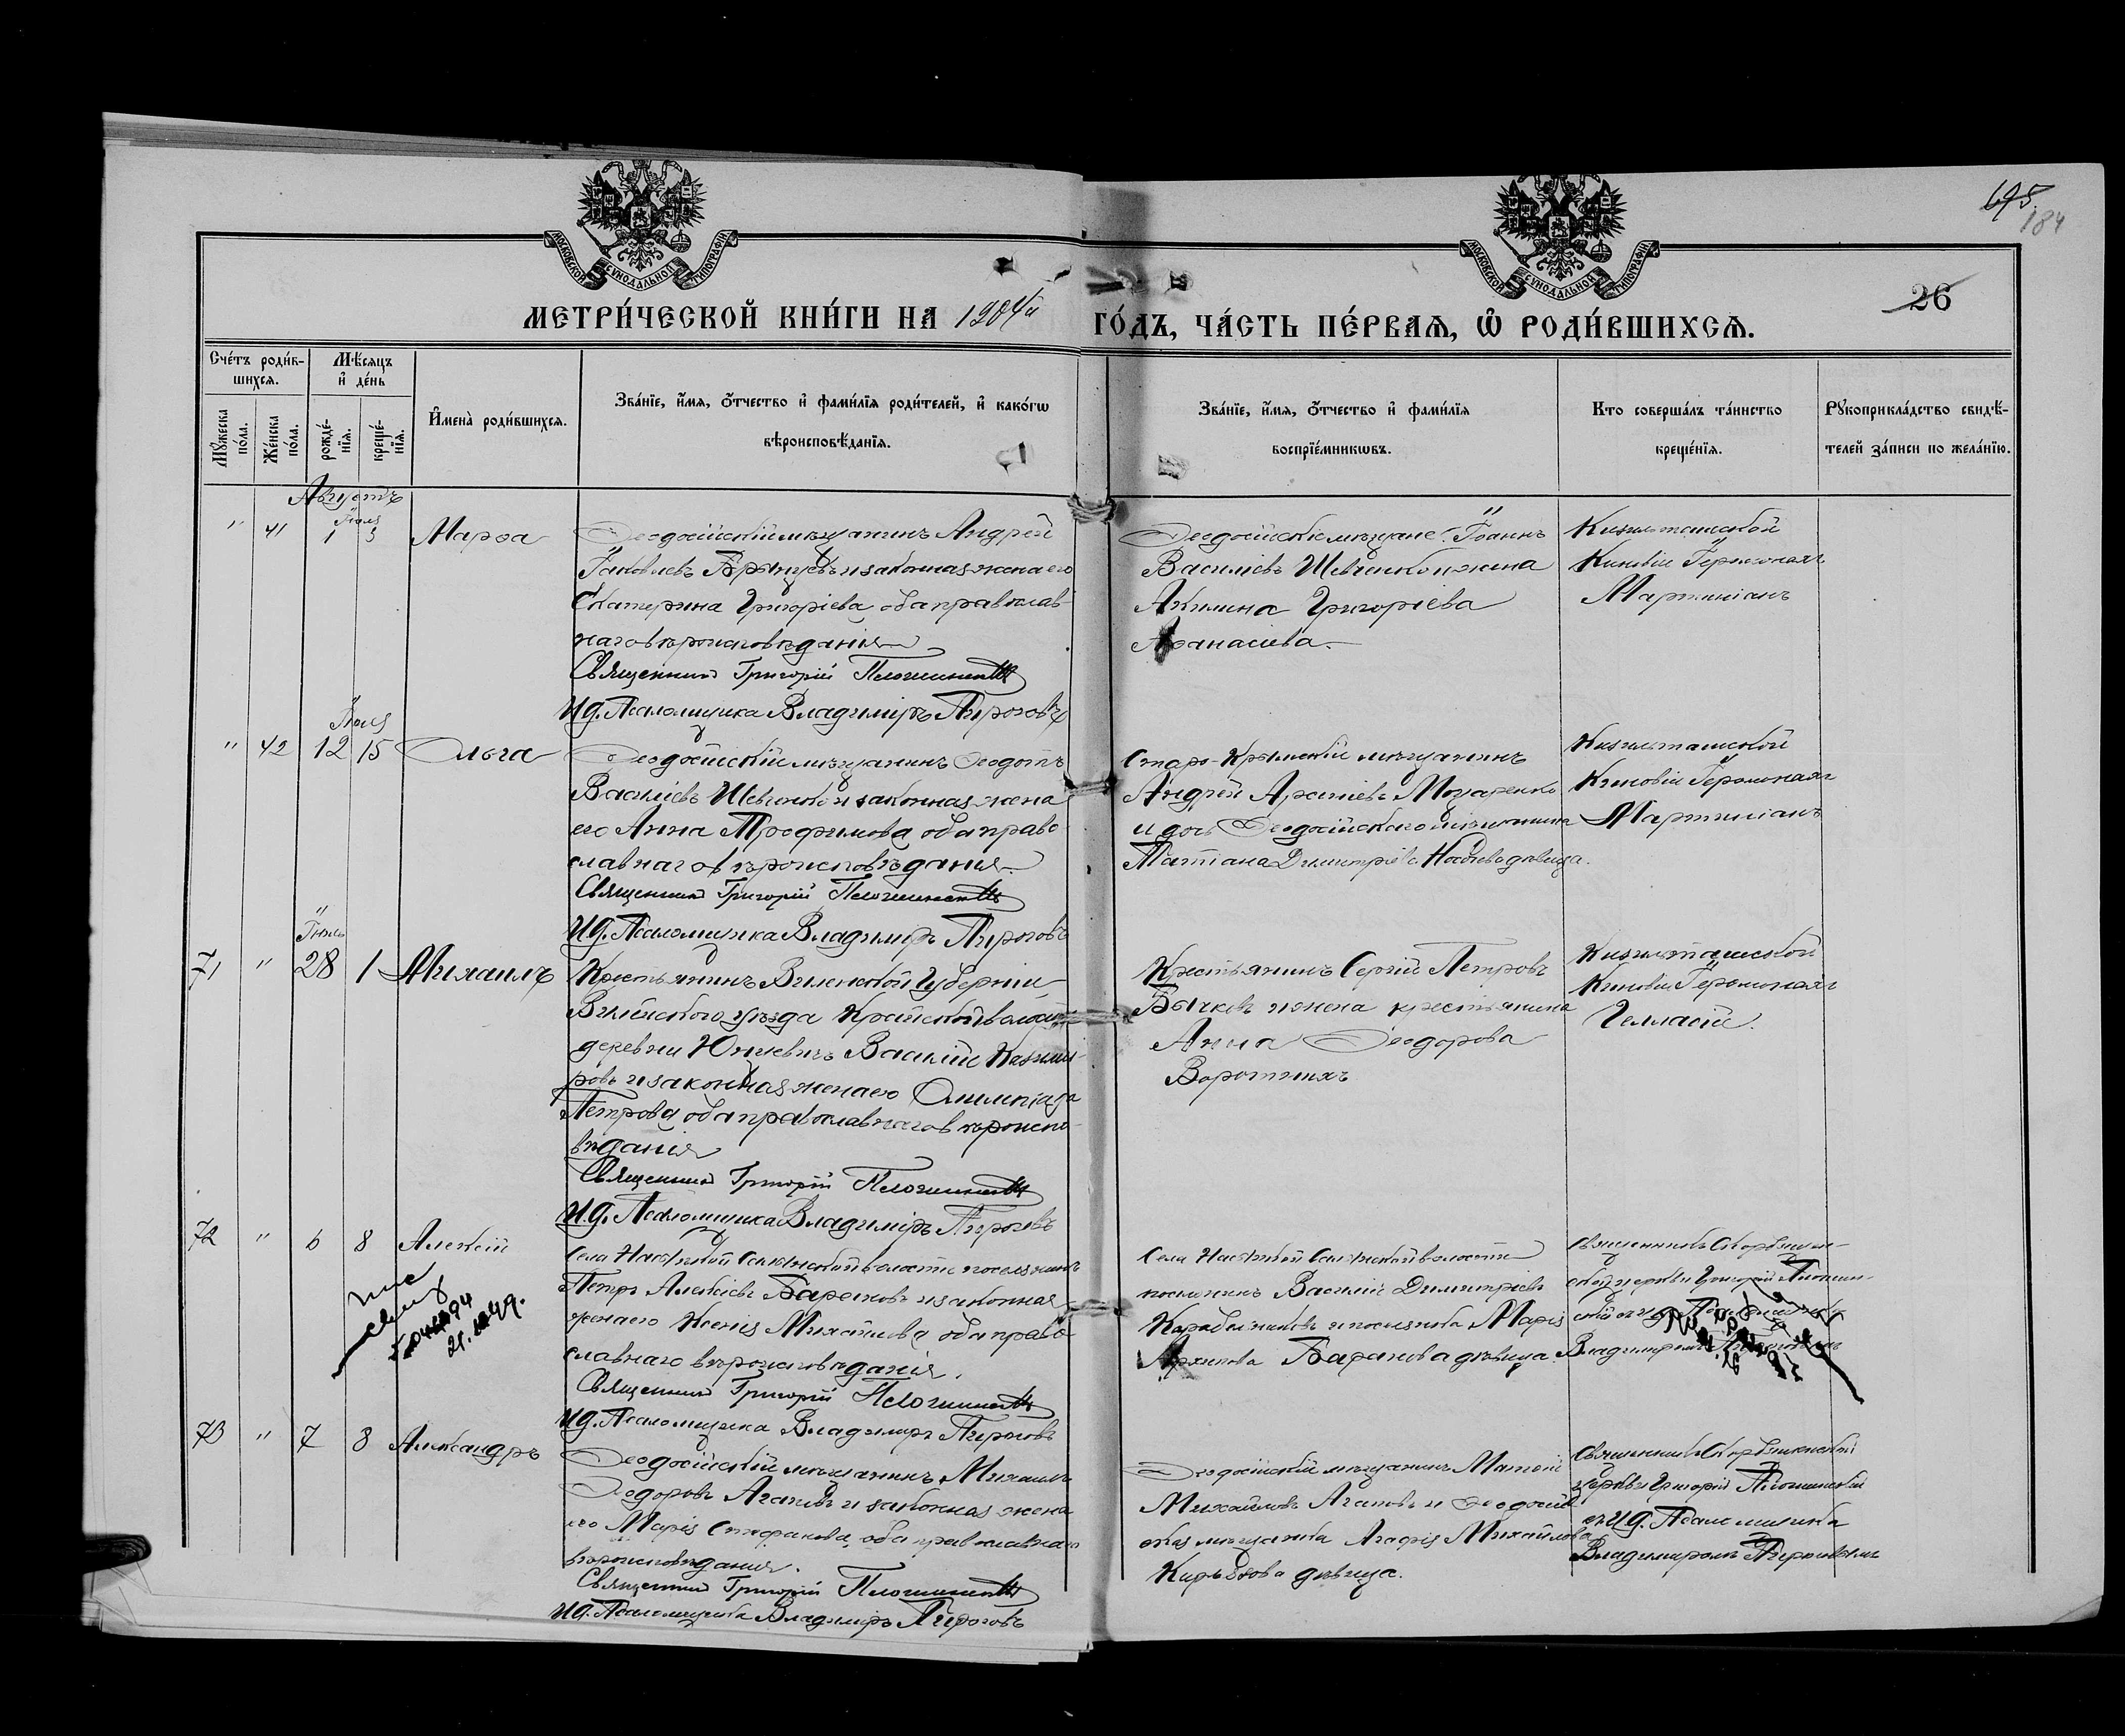 695
184
МОСКОВСКОЙ СУНОДАЛЬНОЙ ТИПОГРАФІИ
МОСКОВСКОЙ СУНОДАЛЬНОЙ ТИПОГРАФІИ
26
МЕТРИ́ЧЕСКОЙ КНИ́ГИ НА 1904й ГО́ДЪ, ЧА́СТЬ ПЕ́РВАѦ, Ѡ҆ РОДИ́ВШИХСѦ.
Сче́тъ роди́в-
шихсѧ.
Мѣ́сѧцъ
и҆ де́нь
Мꙋ́жеска
по́ла.
Же́нска
по́ла.
рожде́-
нїѧ.
креще́-
нїѧ.
И҆мена̀ роди́вшихсѧ.
Зва́нїе, и҆́мѧ, ѻ҆́тчество и҆ фами́лїѧ роди́телей, и҆ како́гѡ
вѣроисповѣ́данїѧ.
Зва́нїе, и҆́мѧ, ѻ҆́тчество и҆ фами́лїѧ
воспрїе́мникѡвъ.
Кто соверша́лъ та́инство
креще́нїѧ.
Рꙋкоприкла́дство свидѣ́-
телей за́писи по жела́нїю.
Августъ
" 41 1 3 Марѳа
Ѳеодосійскій мѣщанинъ Андрей
Іаковлевъ и законная жена его
Екатерина Григоріева оба православ-
наго вѣроисповѣданія
Священникъ Григорій
И.д. Псаломщика Владиміръ Пироговъ
Ѳеодосійскіе мѣщане: Іоаннъ
Василіевъ Шевченко и жена
Акилина Григоріева
Аѳанасіева.
Кизильташской
Киновіи Іеромонахъ
Мартиніанъ
Іюля
" 42 12 15 Ольга
Ѳеодосійскій мѣщанинъ Ѳеодотъ
Василіевъ Шевченко и законная жена
его Анна Трофимова оба право-
славнаго вѣроисповѣданія.
Священникъ Григорій
И.д. Псаломщика Владиміръ Пироговъ
Старо-Крымскій мѣщанинъ
Андрей
и дочь Ѳеодосійскаго мѣщанина
Татіана Димитріева дѣвица.
Кизильташской
Киновіи Іеромонахъ
Мартиніанъ
71 " 28 1 Михаилъ
Крестьянинъ Виленской Губерніи
Вилейскаго уѣзда Крайской волости
деревни Василій Казими-
ровъ и законная жена его Олимпіада
Петрова оба православнаго вѣроиспо-
вѣданія
Священникъ Григорій
И.д. Псаломщика Владиміръ Пироговъ
Крестьянинъ Сергій Петровъ
Бычковъ и жена крестьянина
Анна Ѳеодорова
Воротнихъ
Кизильташской
Киновіи Іеромонахъ
Геласій.
72 " 6 8 Алексій
волости поселянинъ
Петръ Алексіевъ Барановъ и законная
жена его Ксенія Михаилова оба право-
славнаго вѣроисповѣданія.
Священникъ Григорій
И.д. Псаломщика Владиміръ Пироговъ
волости
поселянинъ Василій Димитріевъ
Карабельниковъ и поселянка Марія
Архипова Баранова дѣвица.
церкви Григорій
Владиміромъ Пироговымъ
73 " 7 8 Александръ
Ѳеодосійскій мѣщанинъ Михаилъ
Ѳеодоровъ Агаповъ и законная жена
его Марія Стефанова, оба православнаго
вѣроисповѣданія.
Священникъ Григорій
И.д. Псаломщика Владиміръ Пироговъ
Ѳеодосійскій мѣщанинъ Матѳій
Михайловъ Агаповъ и Ѳеодосій-
ская мѣщанка Агаѳія Михайлова
дѣвица.
церкви Григорій
съ И.д. Псаломщика
Владиміромъ Пироговымъ